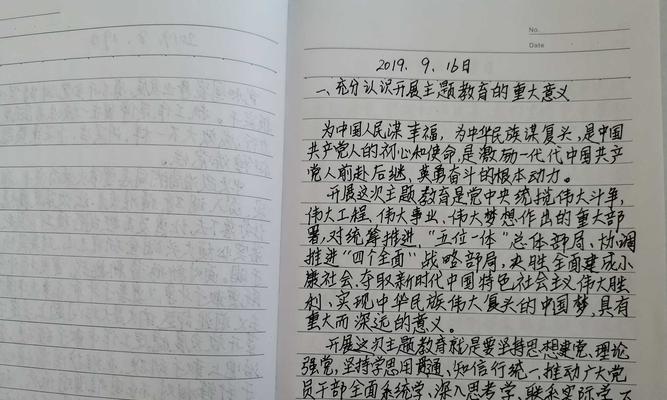 No.
Date
2019. 9. 16日
一、充分认识开展主题教育的重大意义
为中国人民谋幸福，为中华民族谋复兴，是中国
共产党人的初心和使命，是激励一代代中国共产
党人前赴后继、英勇奋斗的根本动力。
开展这次主题教育是党中央统揽伟大斗争、
伟大工程、伟大事业、伟大梦想作出的重大部
署，对统筹推进，“五位一体”总体部局、协调
推进“四个全面”战略部局，决胜全面建成小
康社会、夺取新时代中国特色社会主义伟大胜
利、实现中华民族伟大复兴的中国梦，具有
重大而深远的意义。
开展这次主题教育就是要坚持思想建党、理论
强党，坚持学思用贯通、知信行统一推动广大党
员干部全面系统学、深入思考学、联系实际学